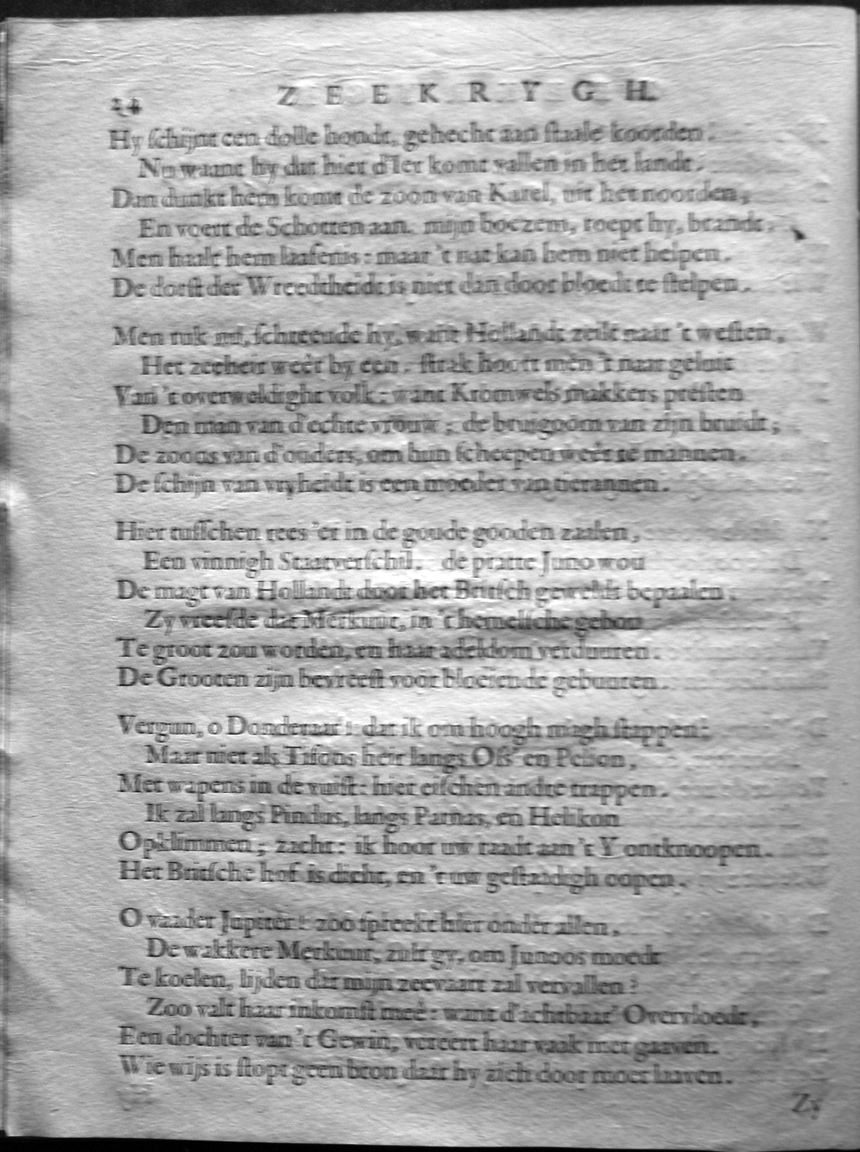 24 ZEEKRYGH.
Hy ſchijnt een dolle hondt, gehecht aan ſtaale koorden.
Nu waant hy dat hier d'Ier komt vallen in het landt.
Dan dunkt hem komt de zoon van Karel, uit het noorden,
En voert de Schotten aan. mijn boezem, roept hy, brandt.
Men haale hem laafenis: maar 't nat kan hem niet helpen.
De dorſt der Wreedtheidt is niet dan door bloedt te ſtelpen.
Men ruk uit, ſchreeude hy, want Hollandt zeilt naar 't weſten,
Het zeeheir weêr by een. ſtrak hoort men 't naar geluit
Van 't overweldight volk: want Kromwels makkers preſten
Den man van d'echte vrouw; de bruigoom van zijn bruidt;
De zoons van d'ouders, om hun ſcheepen weêr te mannen.
De ſchijn van vryheidt is een moeder van tierannen.
Hier tuſſchen rees 'er in de goude gooden zaalen,
Een vinnigh Staatverſchil. de pratte Juno wou
De magt van Hollandt door het Britſch geweldt bepaalen.
Zy vreeſde dat Merkuur, in 't hemelſche gebou
Te groot zou worden, en haar adeldom verduuren.
De Grooten zijn bevreeſt voor bloeiende gebuuren.
Vergun, o Donderaar! dat ik om hoogh magh ſtappen:
Maar niet als Tifons heir langs Oſs' en Pelion,
Met wapens in de vuiſt: hier eiſchen andre trappen.
Ik zal langs Pindus, langs Parnas, en Helikon
Opklimmen; zacht: ik hoor uw raadt aan 't Y ontknoopen.
Het Britſche hof is dicht, en 't uw geſtaadigh oopen.
O vaader Jupiter! zoo ſpreekt hier onder allen,
De wakkere Merkuur, zult gy, om Junoos moedt
Te koelen, lijden dat mijn zeevaart zal vervallen?
Zoo valt haar inkomſt meê: want d'achtbaar' Overvloedt,
Een dochter van 't Gewin, vereert haar vaak met gaaven.
Wie wijs is ſtopt geen bron daar hy zich door moet laaven.
Zy